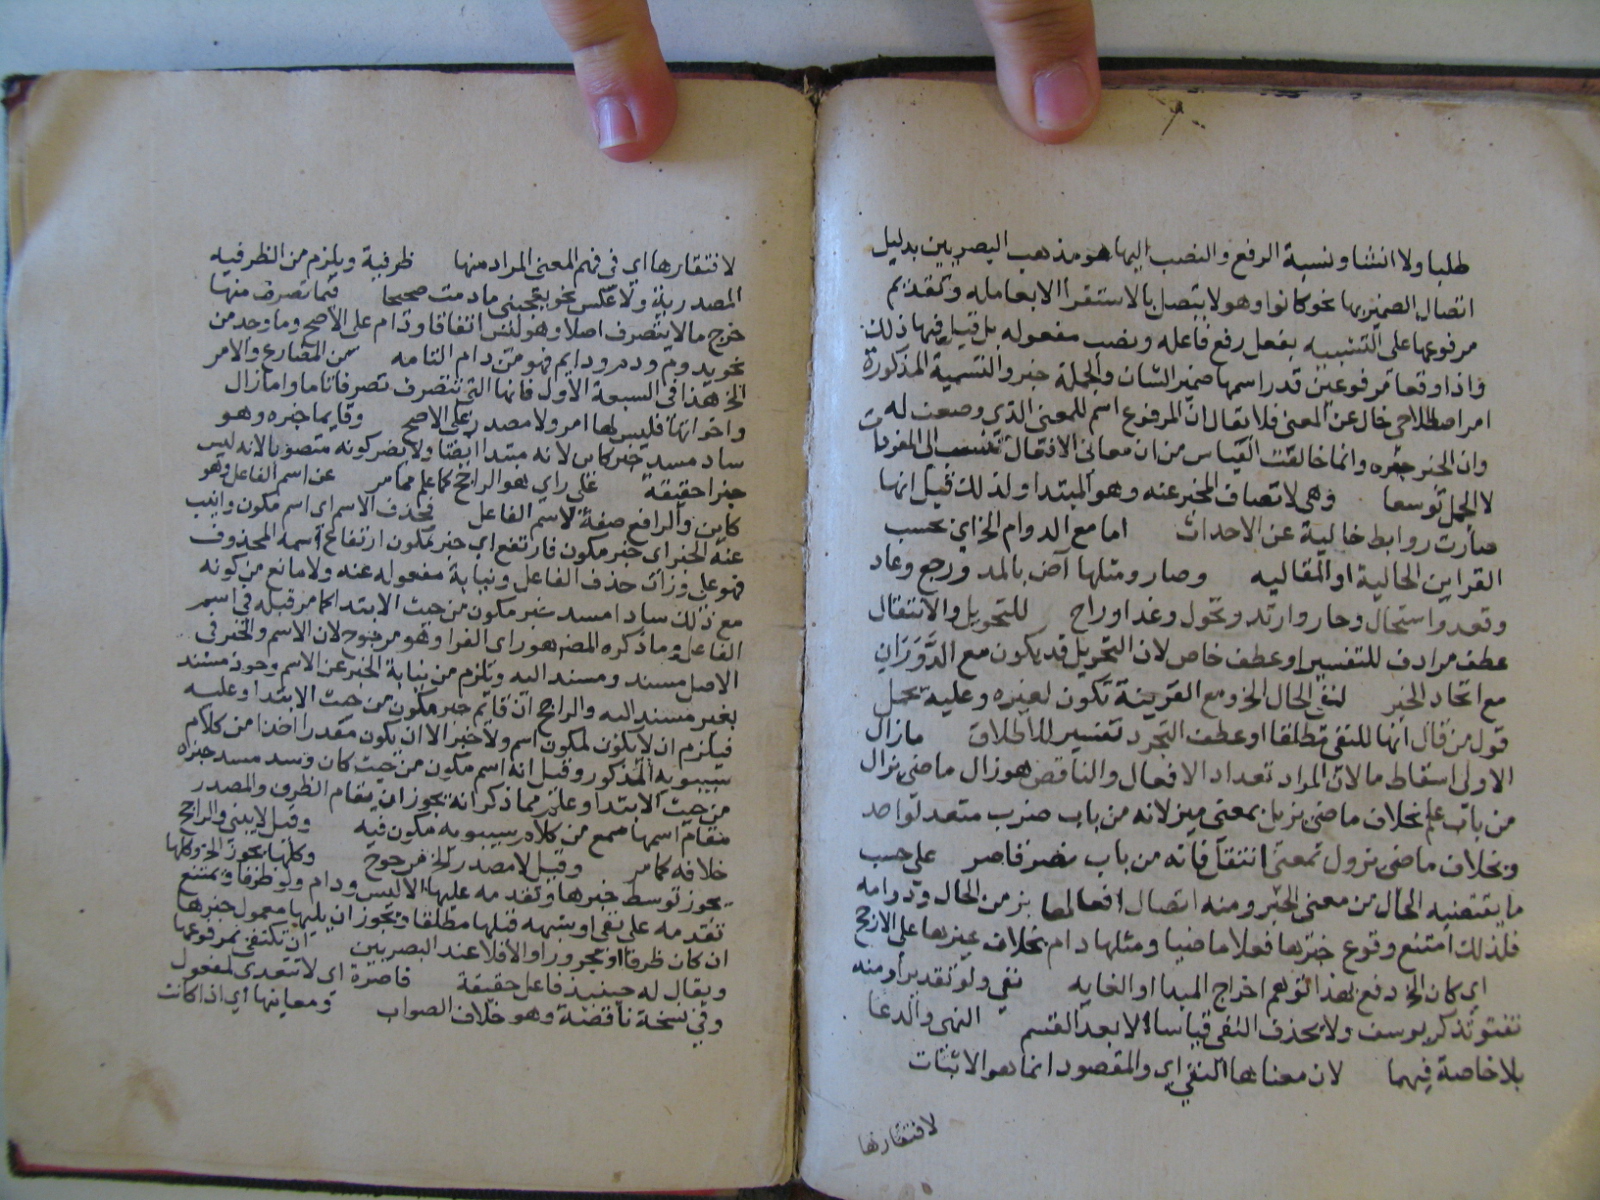 طلبا ولا انشا ونسبة الرفع والنصب اليها هو مذهب البصريين بدليل
اتصال الضمير بها نحو كانوا وهو لا يتصل بالاستقرا الا بعامله وتقديم
مرفوعها على التشبيه بفعل رفع فاعله ونصب مفعوله بل قيل فيها ذلك
واذا وقعا مرفوعين قدر اسمها ضمير الشان والجملة خبر والتسمية المذكورة
امر اصطلاحي خال عن المعنى فلا يقال ان المرفوع اسم للمعنى الذي وضعت له
وان الخبر خبره وانما خالفت القياس من ان معاني الافعال تنسب الى المفردات
لا الجمل توسعا وهي لاتصاف المخبر عنه وهو المبتدا ولذلك قيل انها
صارت روابط خالية عن الاحداث اما مع الدوام الخ اي بحسب
القراين الحالية او المقاليه وصار ومثلها آض بالمد ورجع وعاد
وقعد واستحال وحار وارتد وتحول وغدا وراح للتحويل والانتقال
عطف مرادف للتفسير او عطف خاص لان التحويل قد يكون مع الدوران
مع اتحاد الخبر لنفي الحال الخ ومع القرينة تكون لغيره وعليه يحمل
قول من قال انها للنفي مطلقا وعطف التجرد تفسير للاطلاق مازال
الاولى اسقاط ما لان المراد تعداد الافعال والناقص هو زال ماضي يزال
من باب علم بخلاف ماضي يزيل بمعنى ميز لانه من باب ضرب متعد لواحد
وبخلاف ماضي يزول بمعنى انتقل فانه من باب نصر قاصر على حسب
ما يقتضيه الحال من معنى الخبر ومنه اتصال افعالها بزمن الحال ودوامه
فلذلك امتنع وقوع خبرها فعلا ماضيا ومثلها دام بخلاف غيرها على الارجح
اي كان الخ دفع لهذا توهم اخراج المبدا او الغايه نفي ولو تقديرا ومنه
تفتو تذكر يوسف ولا يحذف النفي قياسا الا بعد القسم النهي والدعا
بلا خاصة فيهما لان معناها النفي اي والمقصود انما هو الاثبات
لافتقارها
لافتقارها اي في فهم المعنى المراد منها ظرفية ويلزم من الظرفيه
المصدرية ولا عكس نحو يعجبني ما دمت صحيحا فيما تصرف منها
خرج ما لا يتصرف اصلا وهو ليس اتفاقا ودام على الاصح وما وجد من
نحو يدوم ودم ودايم فهو من دام التامه من المضارع والامر
الخ هذا في السبعة الاول فانها التي تتصرف تصرفا تاما واما زال
واخواتها فليس لها امر ولا مصدر على الاصح وقايما خبره وهو
ساد مسد خبر كاين لانه مبتدا ايضا ولا يضر كونه متصوبا لانه ليس
خبرا حقيقة على راي هو الراجح كما علم مما مر عن اسم الفاعل وهو
كاين والرافع صفة لاسم الفاعل فحذف الاسم اي اسم مكون وانيب
عنه الخبر اي خبر مكون فارتفع اي خبر مكون ارتفاع اسمه المحذوف
فهو على وزان حذف الفاعل ونيابة مفعوله عنه ولا مانع من كونه
مع ذلك سادا مسد خبر مكون من حيث الابتدا كما مر قبله في اسم
الفاعل وما ذكره المصـ هو راي الفرا وهو مرجوح لان الاسم والخبر في
الاصل مسند ومسند اليه ويلزم من نيابة الخبر عن الاسم وجود مسند
بغير مسند اليه والراجح ان قائم خبر مكون من حيث الابتدا وعليه
فيلزم ان لا يكون لمكون اسم ولا خبر الا ان يكون مقدرا اخذا من كلام
سيبويه المذكور وقيل انه اسم مكون من حيث كان وسد مسد خبره
من حيث الابتدا وعلم مما ذكر انه يجوز ان يقام الظرف والمصدر
مقام اسمها سمع من كلام سيبويه مكون فيه وقيل لا يبنى والراجح
خلافه كما مر وقيل لا مصدر الخ مرجوح وكلها يجوز الخ وكلها
يجوز توسط خبرها وتقدمه عليها الا ليس ودام ولو ظرفا ويمتنع
تقدمه على نفي او شبهه قبلها مطلقا ويجوز ان يليها معمول خبرها
ان كان ظرفا او مجرورا والا فلا عند البصريين ان تكتفي بمرفوعها
ويقال له حينيذ فاعل حقيقة قاصرة اي لا تتعدى لمفعول
وفي نسخة ناقصة وهو خلاف الصواب ومعانيها اي اذا كانت